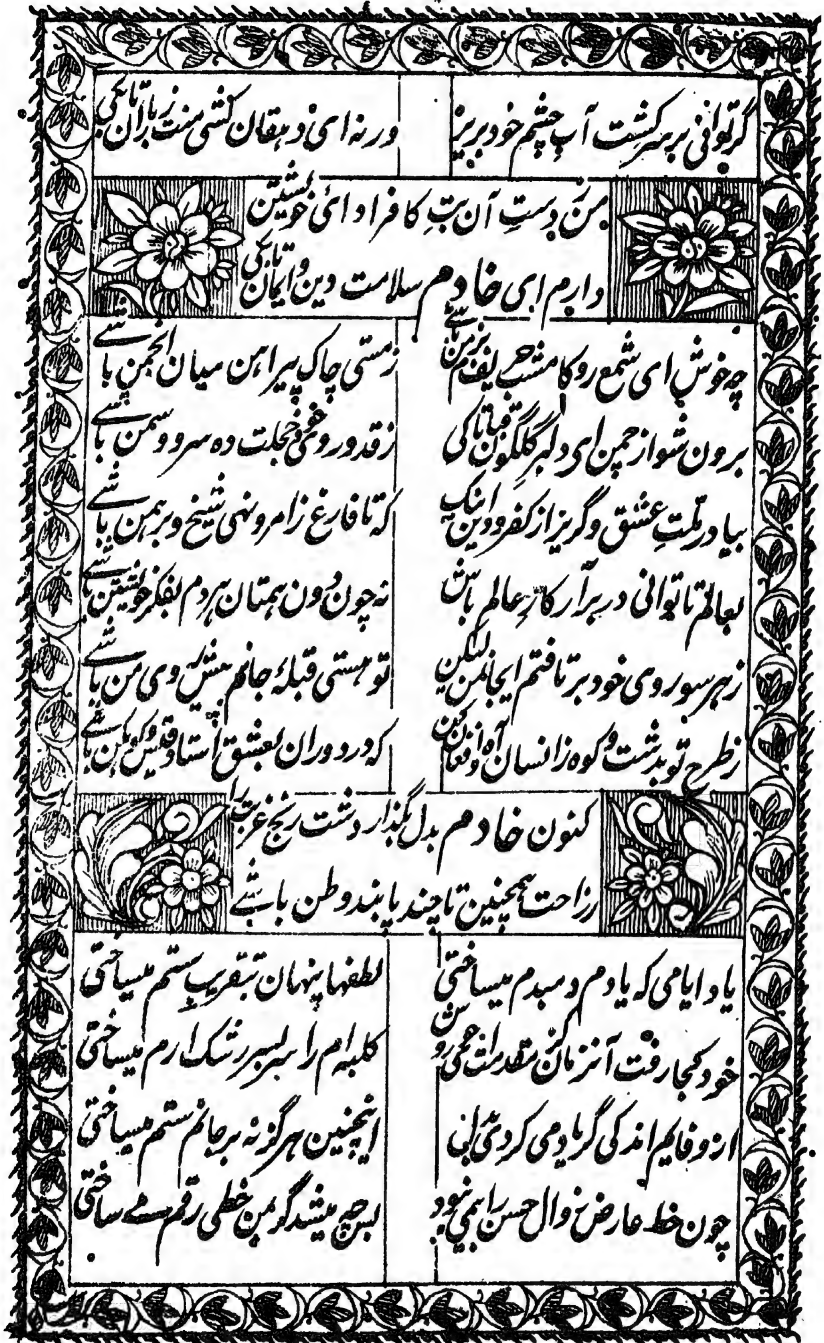 گر توانی بر سر کشت آب چشم خود بریز ورنه ای دهقان کشی منت ز باران تا بکی
من ز دست آن بت کافر ادائی خویشتن
دارم ای خادم سلامت دین و ایمان تا بکی
چه خوش ای شمع رو کامشب حریف بزم من باشے ز مستی چاک پیراهن میان انجمن باشے
برون شو از چمن ای دلبر گلگون قبا تا کی ز قد و روی خود خجلت ده سرو و سمن باشے
بیا در ملت عشق و گریز از کفر و دین اینک که تا فارغ ز امر و نهی شیخ و برهمن باشے
بعالم تا توانی در برآر کار عالم باش نه چون دون همتان هر دم بفکر خویشتن باشے
ز هر سو روی خود برتافتم ایجان من لیکن تو هستی قبلهٔ جانم به پیش روی من باشے
ز طرح تو بدشت و کوه زانسان آه و افغان کن که در دوران بعشق استاد قیس و کوهکن باشے
کنون خادم بدل بگذار دشت رنج غربت را
ز راحت همچنین تا چند پابند وطن باشے
یاد ایامی که یادم دمبدم میساختی لطفها پنهان بتقریب ستم میساختی
خود کجا رفت آنزمان کز مقدمت ای حوروش کلبه ام را سربسر رشک ارم میساختی
از وفایم اندکی گر یاد می کردی بدل اینچنین هرگز نه بر جانم ستم میساختی
چون خط عارض زوال حسن را می نمود بس چه میشد گر بمن خطی رقم مے ساختی